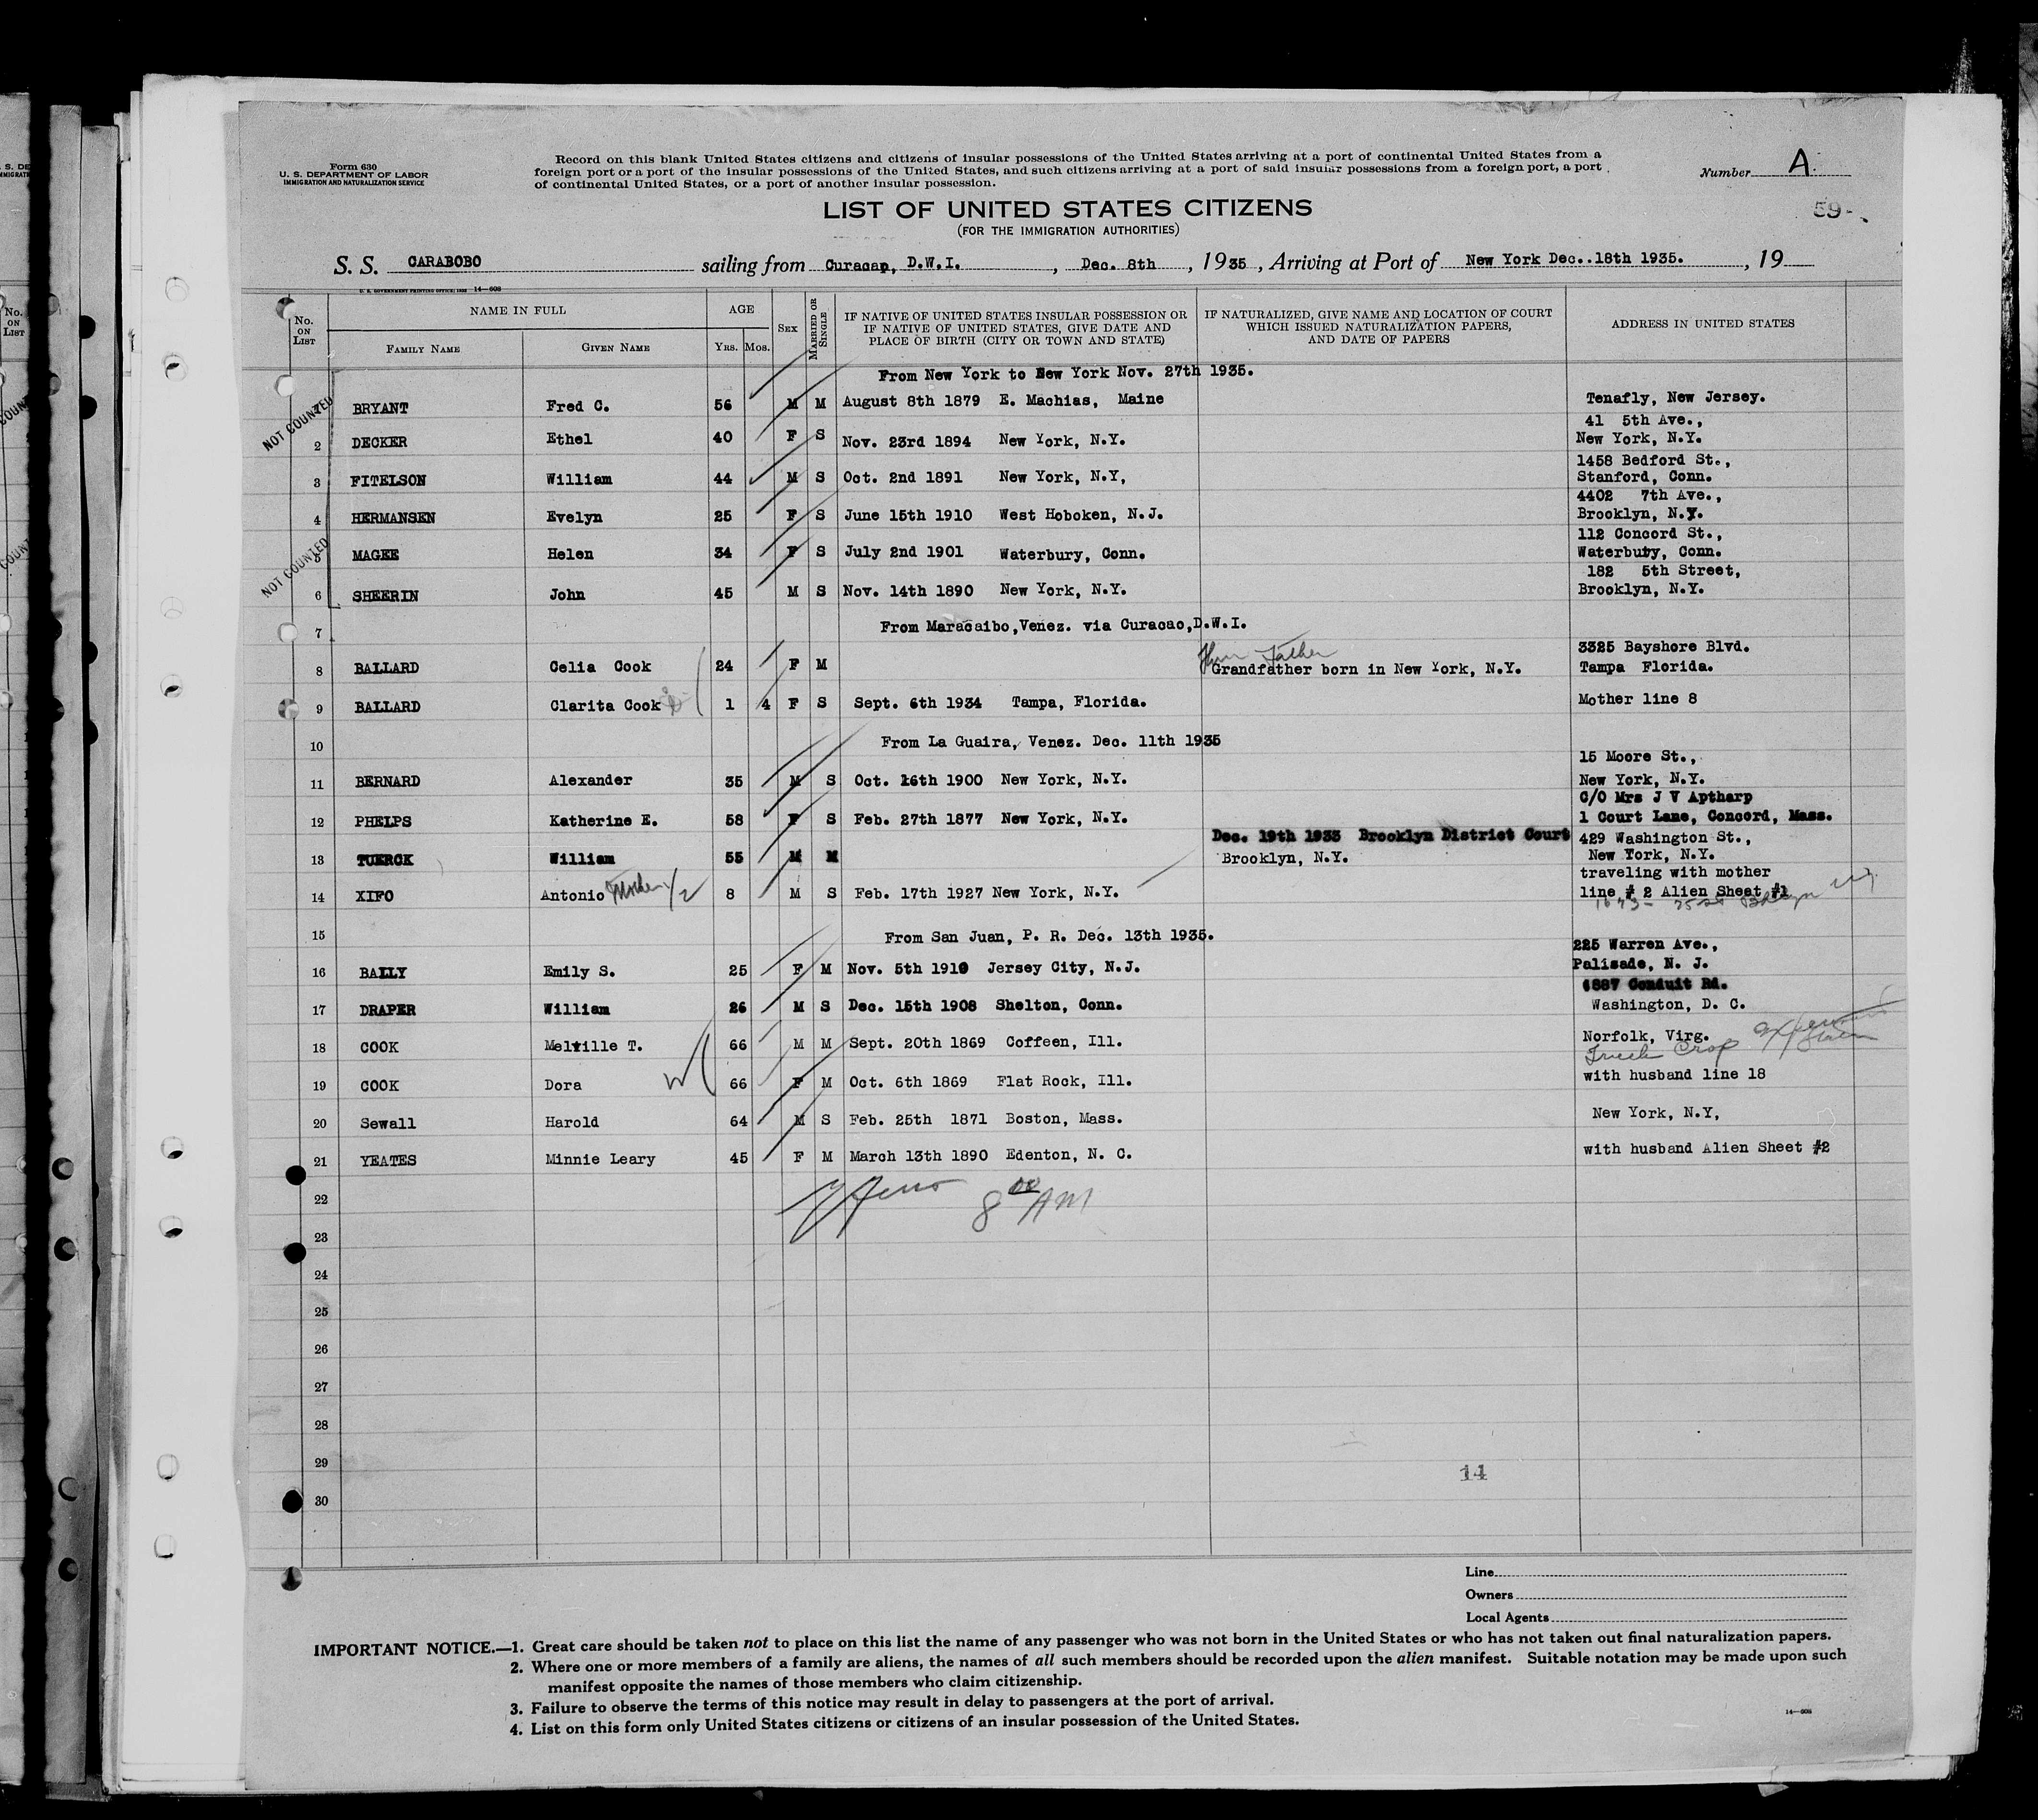 Form 630
U. S. DEPARTMENT OF LABOR
IMMIGRATION AND NATURALIZATION SERVICE
Record on this blank United States citizens and citizens of insular possessions of the United States arriving at a port of continental United States from a
foreign port or a port of the insular possessions of the United States, and such citizens arriving at a port of said insular possessions from a foreign port, a port
of continental United States, or a port of another insular possession.
Number A.
59-
LIST OF UNITED STATES CITIZENS
(FOR THE IMMIGRATION AUTHORITIES)
S. S. CARABOBO sailing from Curacao, D.W.I. , Dec. 8th , 1935 , Arriving at Port of New York Dec..18th 1935. , 19
U. S. GOVERNMENT PRINTING OFFICE: 1932 14—608
No. ON LIST
NAME IN FULL
FAMILY NAME GIVEN NAME
AGE
YRS. MOS.
SEX
MARRIED OR SINGLE
IF NATIVE OF UNITED STATES INSULAR POSSESSION OR
IF NATIVE OF UNITED STATES, GIVE DATE AND
PLACE OF BIRTH (CITY OR TOWN AND STATE)
IF NATURALIZED, GIVE NAME AND LOCATION OF COURT
WHICH ISSUED NATURALIZATION PAPERS,
AND DATE OF PAPERS
ADDRESS IN UNITED STATES
From New York to New York Nov. 27th 1935.
NOT COUNTED
BRYANT Fred C. 56 M M August 8th 1879 E. Machias, Maine Tenafly, New Jersey.
41 5th Ave.,
2 DECKER Ethel 40 F S Nov. 23rd 1894 New York, N.Y. New York, N.Y.
1458 Bedford St.,
3 FITELSON William 44 M S Oct. 2nd 1891 New York, N.Y, Stanford, Conn.
4402 7th Ave.,
4 HERMANSEN Evelyn 25 F S June 15th 1910 West Hoboken, N.J. Brooklyn, N.Y.
112 Concord St.,
NOT COUNTED
5 MAGEE Helen 34 F S July 2nd 1901 Waterbury, Conn. Waterbury, Conn.
182 5th Street,
6 SHEERIN John 45 M S Nov. 14th 1890 New York, N.Y. Brooklyn, N.Y.
7 From Maracaibo,Venez. via Curacao,D.W.I.
Father 3325 Bayshore Blvd.
8 BALLARD Celia Cook 24 F M Grandfather born in New York, N.Y. Tampa Florida.
9 BALLARD Clarita Cook 1 4 F S Sept. 6th 1934 Tampa, Florida. Mother line 8
10 From La Guaira, Venez. Dec. 11th 1935
15 Moore St.,
11 BERNARD Alexander 35 M S Oct. 16th 1900 New York, N.Y. New York, N.Y.
C/O Mrs J V Aptharp
12 PHELPS Katherine E. 58 F S Feb. 27th 1877 New York, N.Y. 1 Court Lane, Concord, Mass.
Dec. 19th 1933 Brooklyn District Court 429 Washington St.,
13 TUERCK William 55 M M Brooklyn, N.Y. New York, N.Y.
traveling with mother
14 XIFO Antonio Mother 1/2 8 M S Feb. 17th 1927 New York, N.Y. line # 2 Alien Sheet #1
15 From San Juan, P. R. Dec. 13th 1935.
225 Warren Ave.,
16 BALLY Emily S. 25 F M Nov. 5th 1910 Jersey City, N.J. Palisade, N. J.
Conduit Rd.
17 DRAPER William 26 M S Dec. 15th 1908 Shelton, Conn. Washington, D. C.
18 COOK Melville T. 66 M M Sept. 20th 1869 Coffeen, Ill. Norfolk, Virg.
Truck Crop
19 COOK Dora 66 F M Oct. 6th 1869 Flat Rock, Ill. with husband line 18
20 Sewall Harold 64 M S Feb. 25th 1871 Boston, Mass. New York, N.Y,
21 YEATES Minnie Leary 45 F M March 13th 1890 Edenton, N. C. with husband Alien Sheet #2
22 8 00 AM
23
24
25
26
27
28
29
14
30
Line
Owners
Local Agents
IMPORTANT NOTICE.—1. Great care should be taken not to place on this list the name of any passenger who was not born in the United States or who has not taken out final naturalization papers.
2. Where one or more members of a family are aliens, the names of all such members should be recorded upon the alien manifest. Suitable notation may be made upon such
manifest opposite the names of those members who claim citizenship.
3. Failure to observe the terms of this notice may result in delay to passengers at the port of arrival.
4. List on this form only United States citizens or citizens of an insular possession of the United States.
14—608